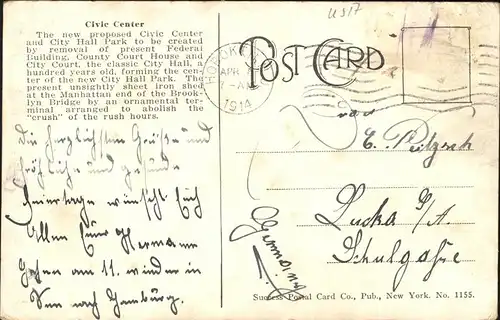 U517
Civic Center
The new proposed Civic Center
and City Hall Park to be created
by removal of present Federal
Building, County Court House and
City Court, the classic City Hall, a
hundred years old, forming the cen-
ter of the new City Hall Park. The
present unsightly sheet iron shed
at the Manhattan end of the Brook-
lyn Bridge by an ornamental ter-
minal arranged to abolish the
"crush" of the rush hours.
HOBOKEN
APR
7-AM
1914
POST CARD
Die herzlichsten Grüße und
fröhliche und gesunde
Feiertage wünscht Euch
Allen Euer Hermann
Gehen am 11. wieder in
See nach Hamburg.
E. Peitzsch
Lucka S/A.
Schulgasse
Germany
Success Postal Card Co., Pub., New York. No. 1155.